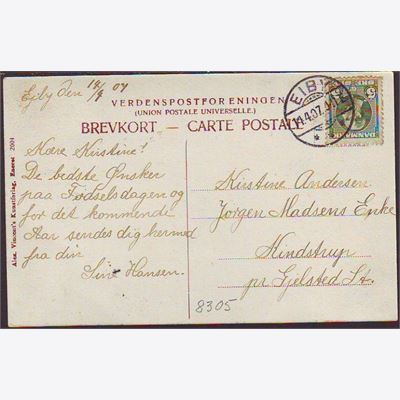 Ejby den 14/4 07
VERDENSPOSTFORENINGEN
(UNION POSTALE UNIVERSELLE.)
BREVKORT — CARTE POSTALE
EIBY
14.4.07
DANMARK
Kære Kristine!
De bedste Ønsker
paa Fødselsdagen og
for det kommende
Aar sendes dig hermed
fra din
Sine Hansen.
Kristine Andersen
Jørgen Madsens Enke
Hindstrup
pr Gjelsted St.
8305
Alex. Vincent's Kunstforlag, Eneret 2001